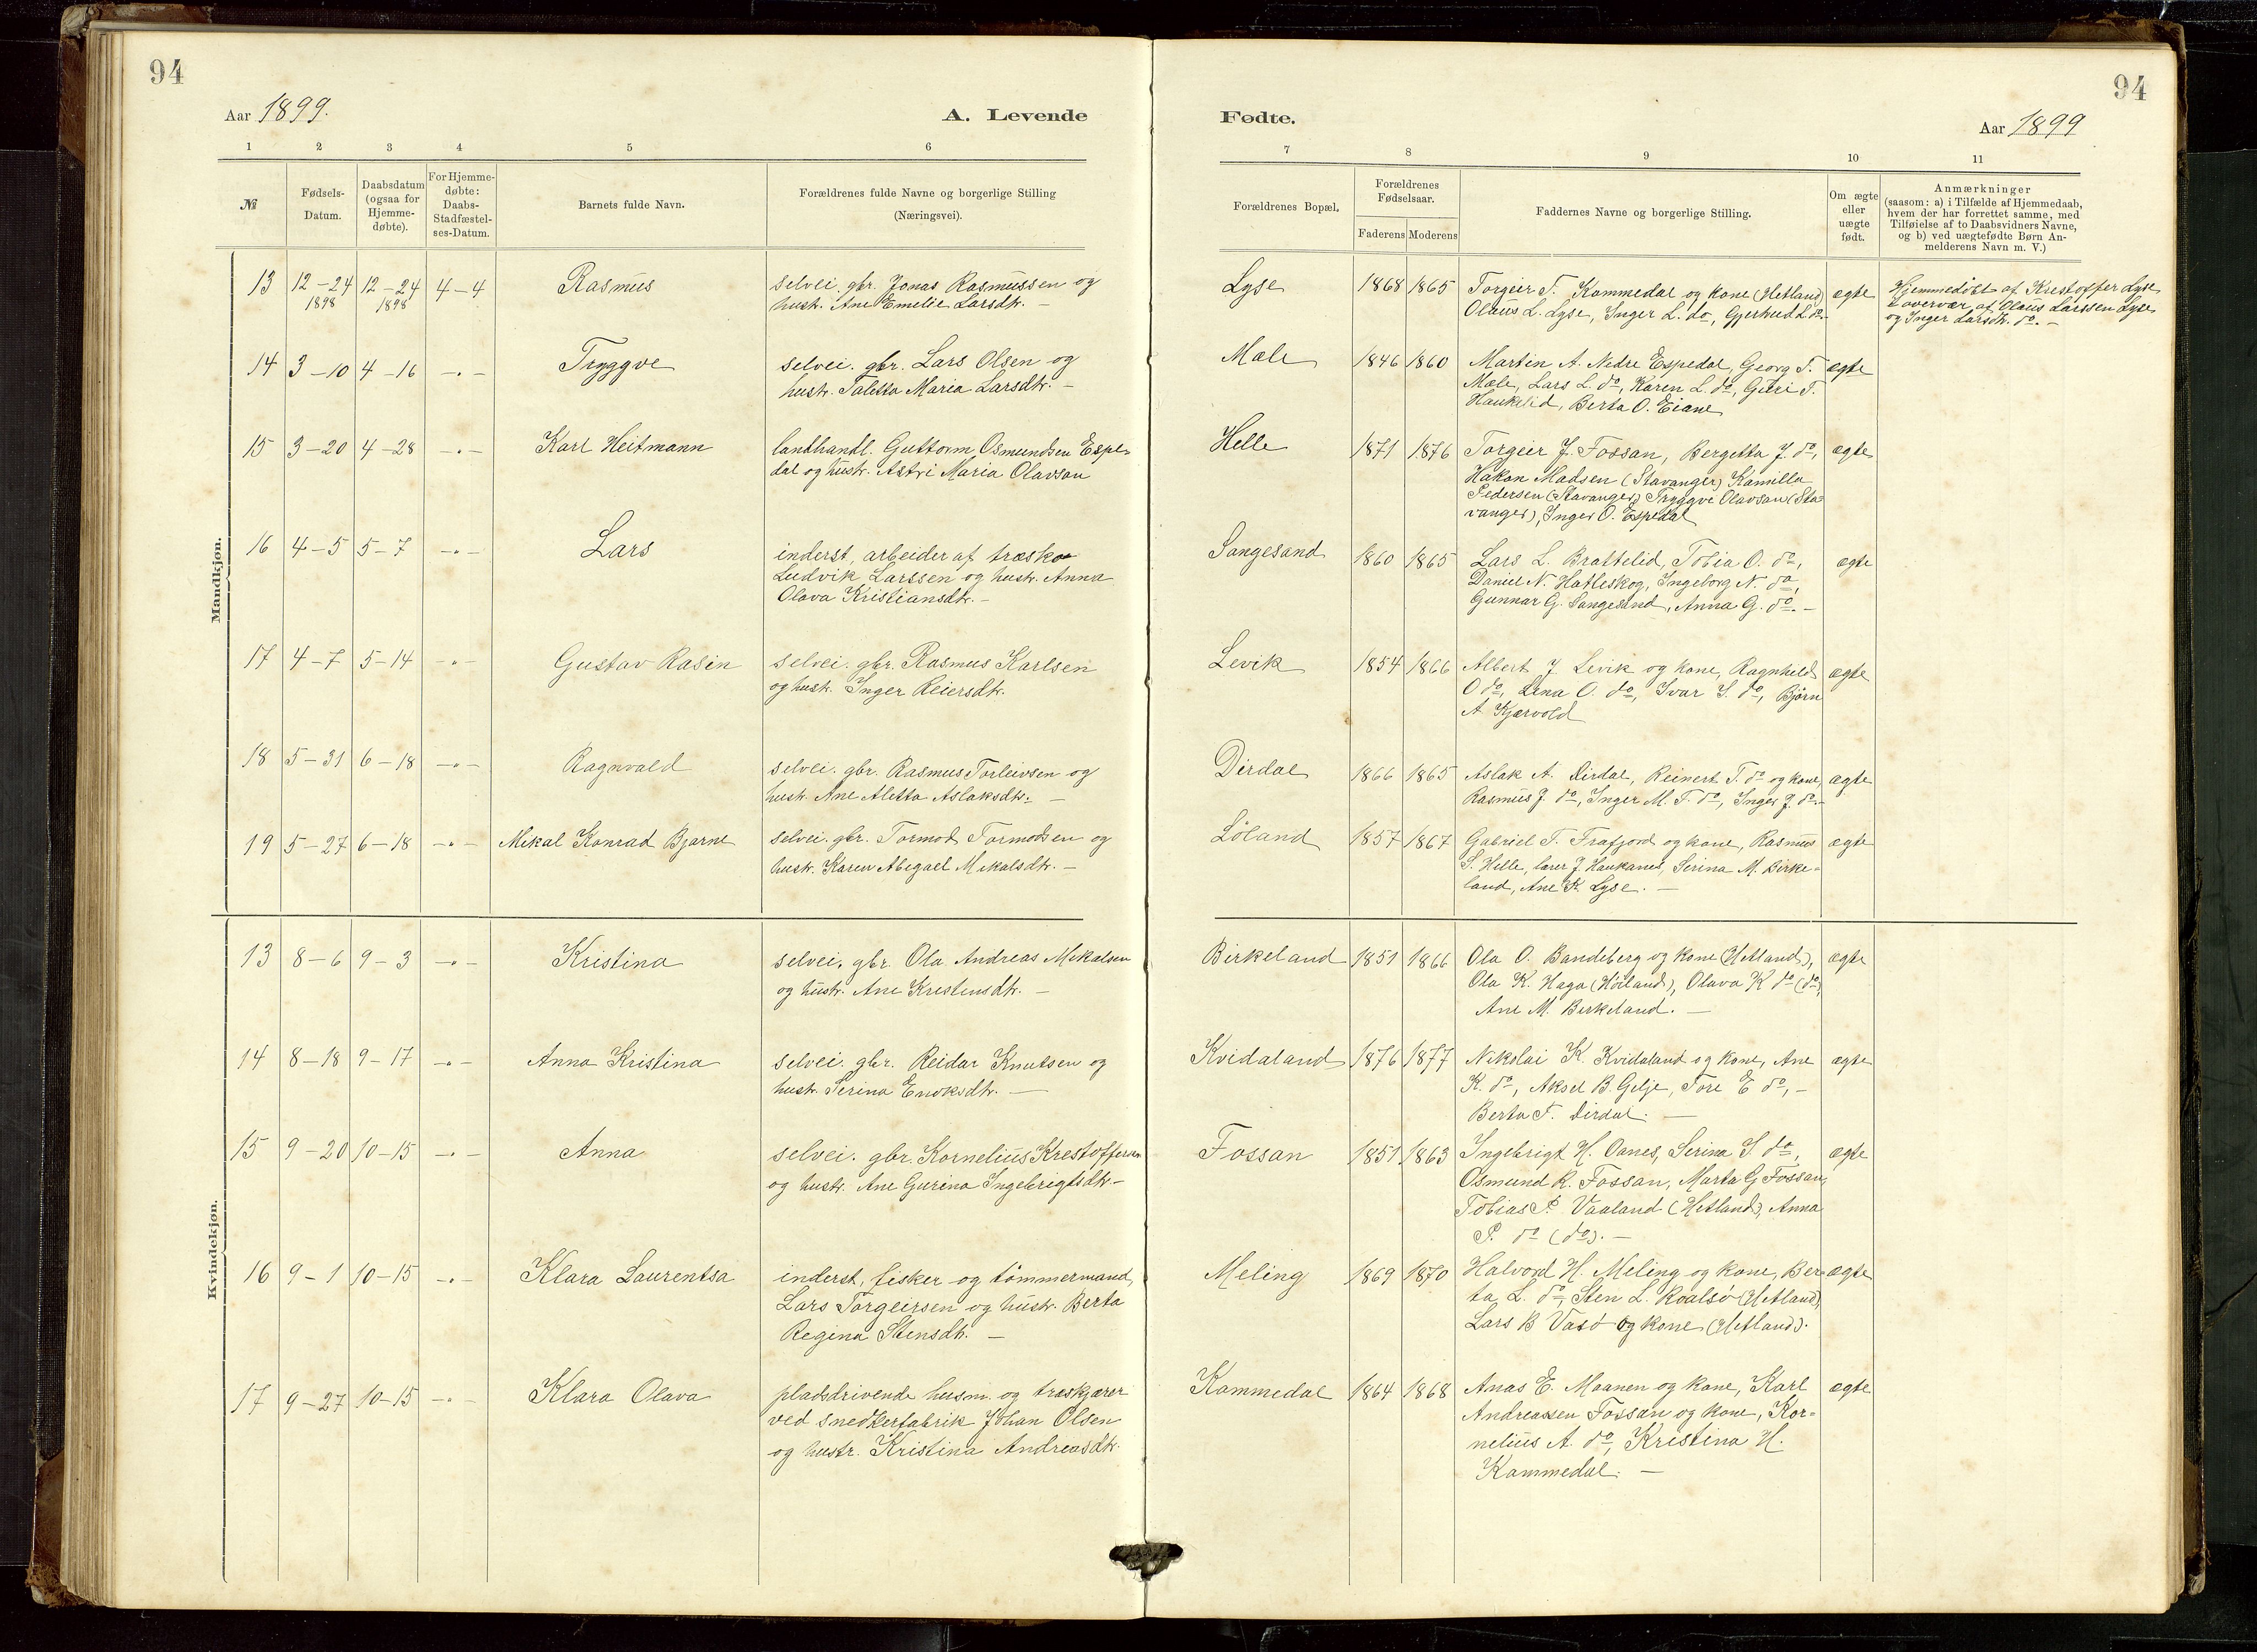 94
Aar 1899.
A. Levende
1 2 3 4 5 6
№
Fødsels-Datum.
Daabsdatum (ogsaa for Hjemme-døbte).
For Hjemme-døbte: Daabs-Stadfæstel-ses-Datum.
Barnets fulde Navn.
Forældrenes fulde Navne og borgerlige Stilling
(Næringsvei).
Mandkjøn.
13 12-24 1898 12-24 1898 4-4 Rasmus
selvei. gbr. Jonas Rasmussen og
hustr. Ane Emelie Larsdtr. -
14 3-10 4-16 -"- Tryggve
selvei. gbr. Lars Olsen og
hustr. Taletta Maria Larsdtr. -
15 3-20 4-28 -"- Karl Heitmann
landhandl. Guttorm Osmundsen Espe-
dal og hustr. Astri Maria Olavson
16 4-5 5-7 -"- Lars
inderst, arbeider af træsko
Ludvik Larssen og hustr. Anna
Olava Kristiansdtr. -
17 4-7 5-14 -"- Gustav Rasin
selvei. gbr. Rasmus Karlsen
og hustr. Inger Reiersdtr.
18 5-31 6-18 -"- Ragnvald
selvei. gbr. Rasmus Torleivsen og
hustr. Ane Aletta Aslaksdtr. -
19 5-27 6-18 -"- Mikal Konrad Bjarne
selvei. gbr. Tormod Tormodsen og
hustr. Karen Abegael Mikalsdtr. -
Kvindekjøn.
13 8-6 9-3 -"- Kristina
selvei. gbr. Ola Andreas Mikalsen
og hustr. Ane Krestensdtr. -
14 8-18 9-17 -"- Anna Kristina
selvei. gbr. Reidar Knutsen og
hustr. Serina Enoksdtr. -
15 9-20 10-15 -"- Anna
selvei. gbr. Kornelius Krestoffersen
og hustr. Ane Gurina Ingebrigtsdtr -
16 9-1 10-15 -"- Klara Laurentsa
inderst, fisker og tømmermand,
Lars Torgeirsen og hustr. Berta
Regina Stensdtr. -
17 9-27 10-15 -"- Klara Olava
pladsdrivende husm. og træskjærer
ved snedkerfabrik Johan Olsen
og hustr. Kristina Andreasdtr.
94
Fødte.
Aar 1899
7 8 9 10 11
Forældrenes Bopæl.
Forældrenes Fødselsaar.
Faderens Moderens
Faddernes Navne og borgerlige Stilling.
Om ægte eller uægte født.
Anmærkninger
(saasom: a) i Tilfælde af Hjemmedaab,
hvem der har forrettet samme, med
Tilføielse af to Daabsvidners Navne,
og b) ved uægtefødte Børn An-
melderens Navn m. V.)
Lyse 1868 1865 Torgeir T. Kommedal og kone (Hetland) ægte
Olaus L. Lyse, Inger L. do, Gjertrud L do.
Hjemmedøbt af Krestoffer Lyse
i overvær af Olaus Larssen Lyse
og Inger Larsdtr. do. -
Mæle 1846 1860 Martin A. Nedre Espedal, Georg T. ægte
Mæle, Lars L. do, Karen L. do, Guri T.
Haukelid, Berta O. Eiane
Helle 1871 1876 Torgeir J. Fossan, Bergetta J. do, ægte
Håkon Madsen (Stavanger) Kamilla
Pedersen (Stavanger) Tryggvi Olavson (Sta-
vanger), Inger O. Espedal
Songesand 1860 1865 Lars L. Brattelid, Tobia O. do, ægte
Daniel N. Hatleskog, Ingeborg N. do,
Gunnar G. Songesand, Anna G. do. -
Levik 1854 1866 Albert J Levik og kone, Ragnhild ægte
O do, Lina O. do, Ivar I. do, Bjørn
A Kjærvold
Dirdal 1866 1865 Aslak A. Dirdal, Reinert T. do og kone, ægte
Rasmus J do, Inger M. T. do, Inger J. do. -
Løland 1857 1867 Gabriel T. Frafjord og kone, Rasmus ægte
S. Helle, lærer J Haukanes, Serina M. Birke-
land, Ane K. Lyse. -
Birkeland 1851 1866 Ola O. Bandeberg og kone (Hetland), ægte
Ola K. Haga (Høiland), Olava K do (do),
Ane M. Birkeland. -
Kvidaland 1876 1877 Nikolai K. Kvidaland og kone, Ane ægte
K. do, Aksel B. Gilje, Tore E do, -
Berta T. Dirdal. -
Fossan 1851 1863 Ingebrigt H. Oanes, Serina I. do, ægte
Osmund R. Fossan, Marta G Fossan,
Tobias P. Vaaland (Hetland), Anna
P. do (do). -
Meling 1869 1870 Halvord H. Meling og kone, Ber- ægte
ta L. do, Sten L. Roalsø (Hetland),
Lars B Vasø og kone (Hetland).
Kommedal 1864 1868 Anas E. Maanen og kone, Karl ægte
Andreassen Fossan og kone, Kor-
nelius A. do, Kristina H.
Kommedal. -